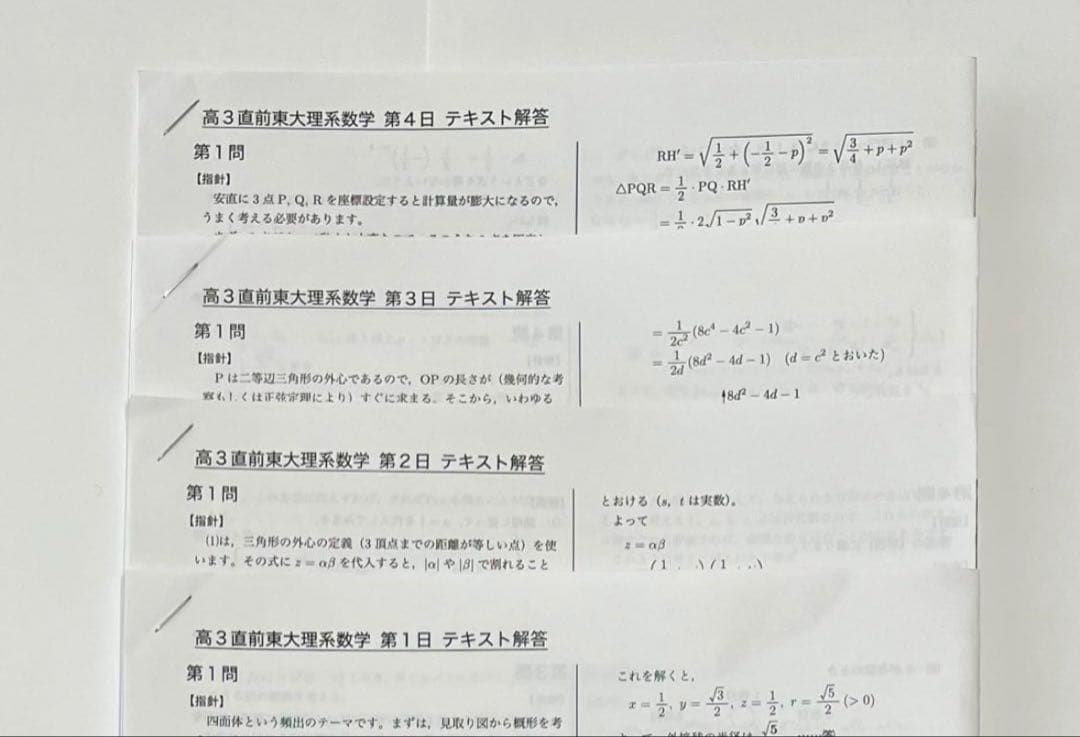 高３直前東大理系数学 第４日 テキスト解答
第１問
【指針】
安直に３点 P, Q, R を座標設定すると計算量が膨大になるので，
うまく考える必要があります。
RH′ = √(1/2 + (−1/2 − p)²) = √(3/4 + p + p²)
△PQR = 1/2 · PQ · RH′
= 1/2 · 2√(1 − p²) √(3/4 + p + p²)
高３直前東大理系数学 第３日 テキスト解答
第１問
【指針】
P は二等辺三角形の外心であるので，OP の長さが（幾何的な考
察もしくは正弦定理により）すぐに求まる。そこから，いわゆる
= 1/2c² (8c⁴ − 4c² − 1)
= 1/2d (8d² − 4d − 1) (d = c² とおいた)
8d² − 4d − 1
高３直前東大理系数学 第２日 テキスト解答
第１問
【指針】
(1)は，三角形の外心の定義（３頂点までの距離が等しい点）を使
います。その式に z = αβ を代入すると，|α| や |β| で割れること
とおける（s, t は実数）。
よって
z = αβ
高３直前東大理系数学 第１日 テキスト解答
第１問
【指針】
四面体という頻出のテーマです。まずは，見取り図から概形を考
これを解くと，
x = 1/2, y = √3/2, z = 1/2, r = √5/2 (> 0)
よって，外接球の半径は √5 ……答